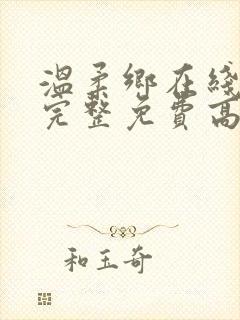 溫柔鄉在綫
完整免費高
和玉奇